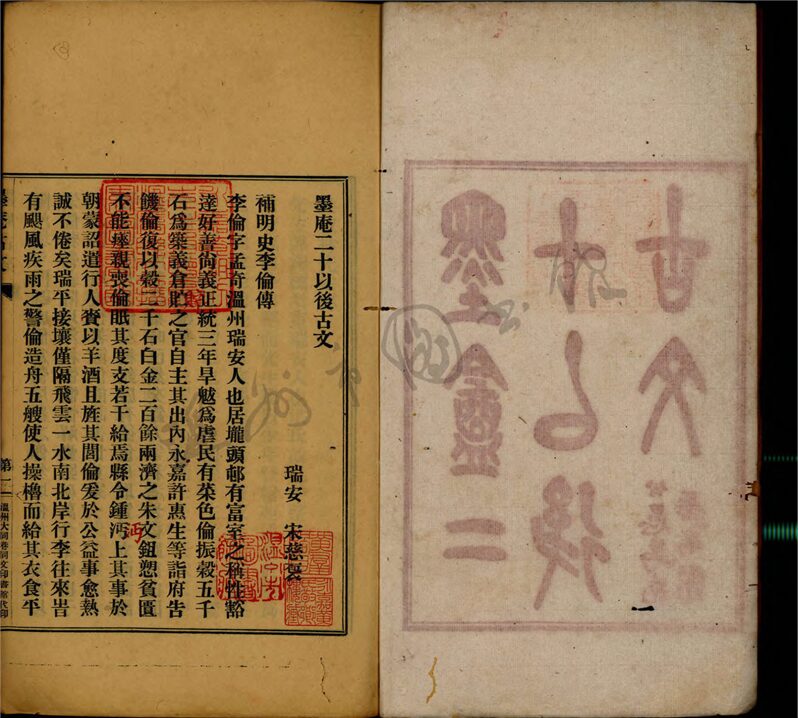 墨盦二
十以後
古文
墨庵二十以後古文
瑞安 宋慈
補明史李倫傳
李倫字孟奇溫州瑞安人也居壠頭邨有富室之稱性豁
達好善尚義正統三年旱魃爲虐民有菜色倫振穀五千
石爲築義倉貯之官自主其出內永嘉許惠生等詣府告
饑倫復以穀二千石白金二百餘兩濟之朱文鈕愬貧匱
不能瘞親喪倫眂其度支若干給焉縣令鍾沔上其事於
朝蒙詔遣行人賚以羊酒且旌其閭倫爰於公益事愈熱
誠不倦矣瑞平接壤僅隔飛雲一水南北岸行李往來旹
有颶風疾雨之警倫造舟五艘使人操櫓而給其衣食平
墨庵古文
第一
溫州大同巷同文印書館代印